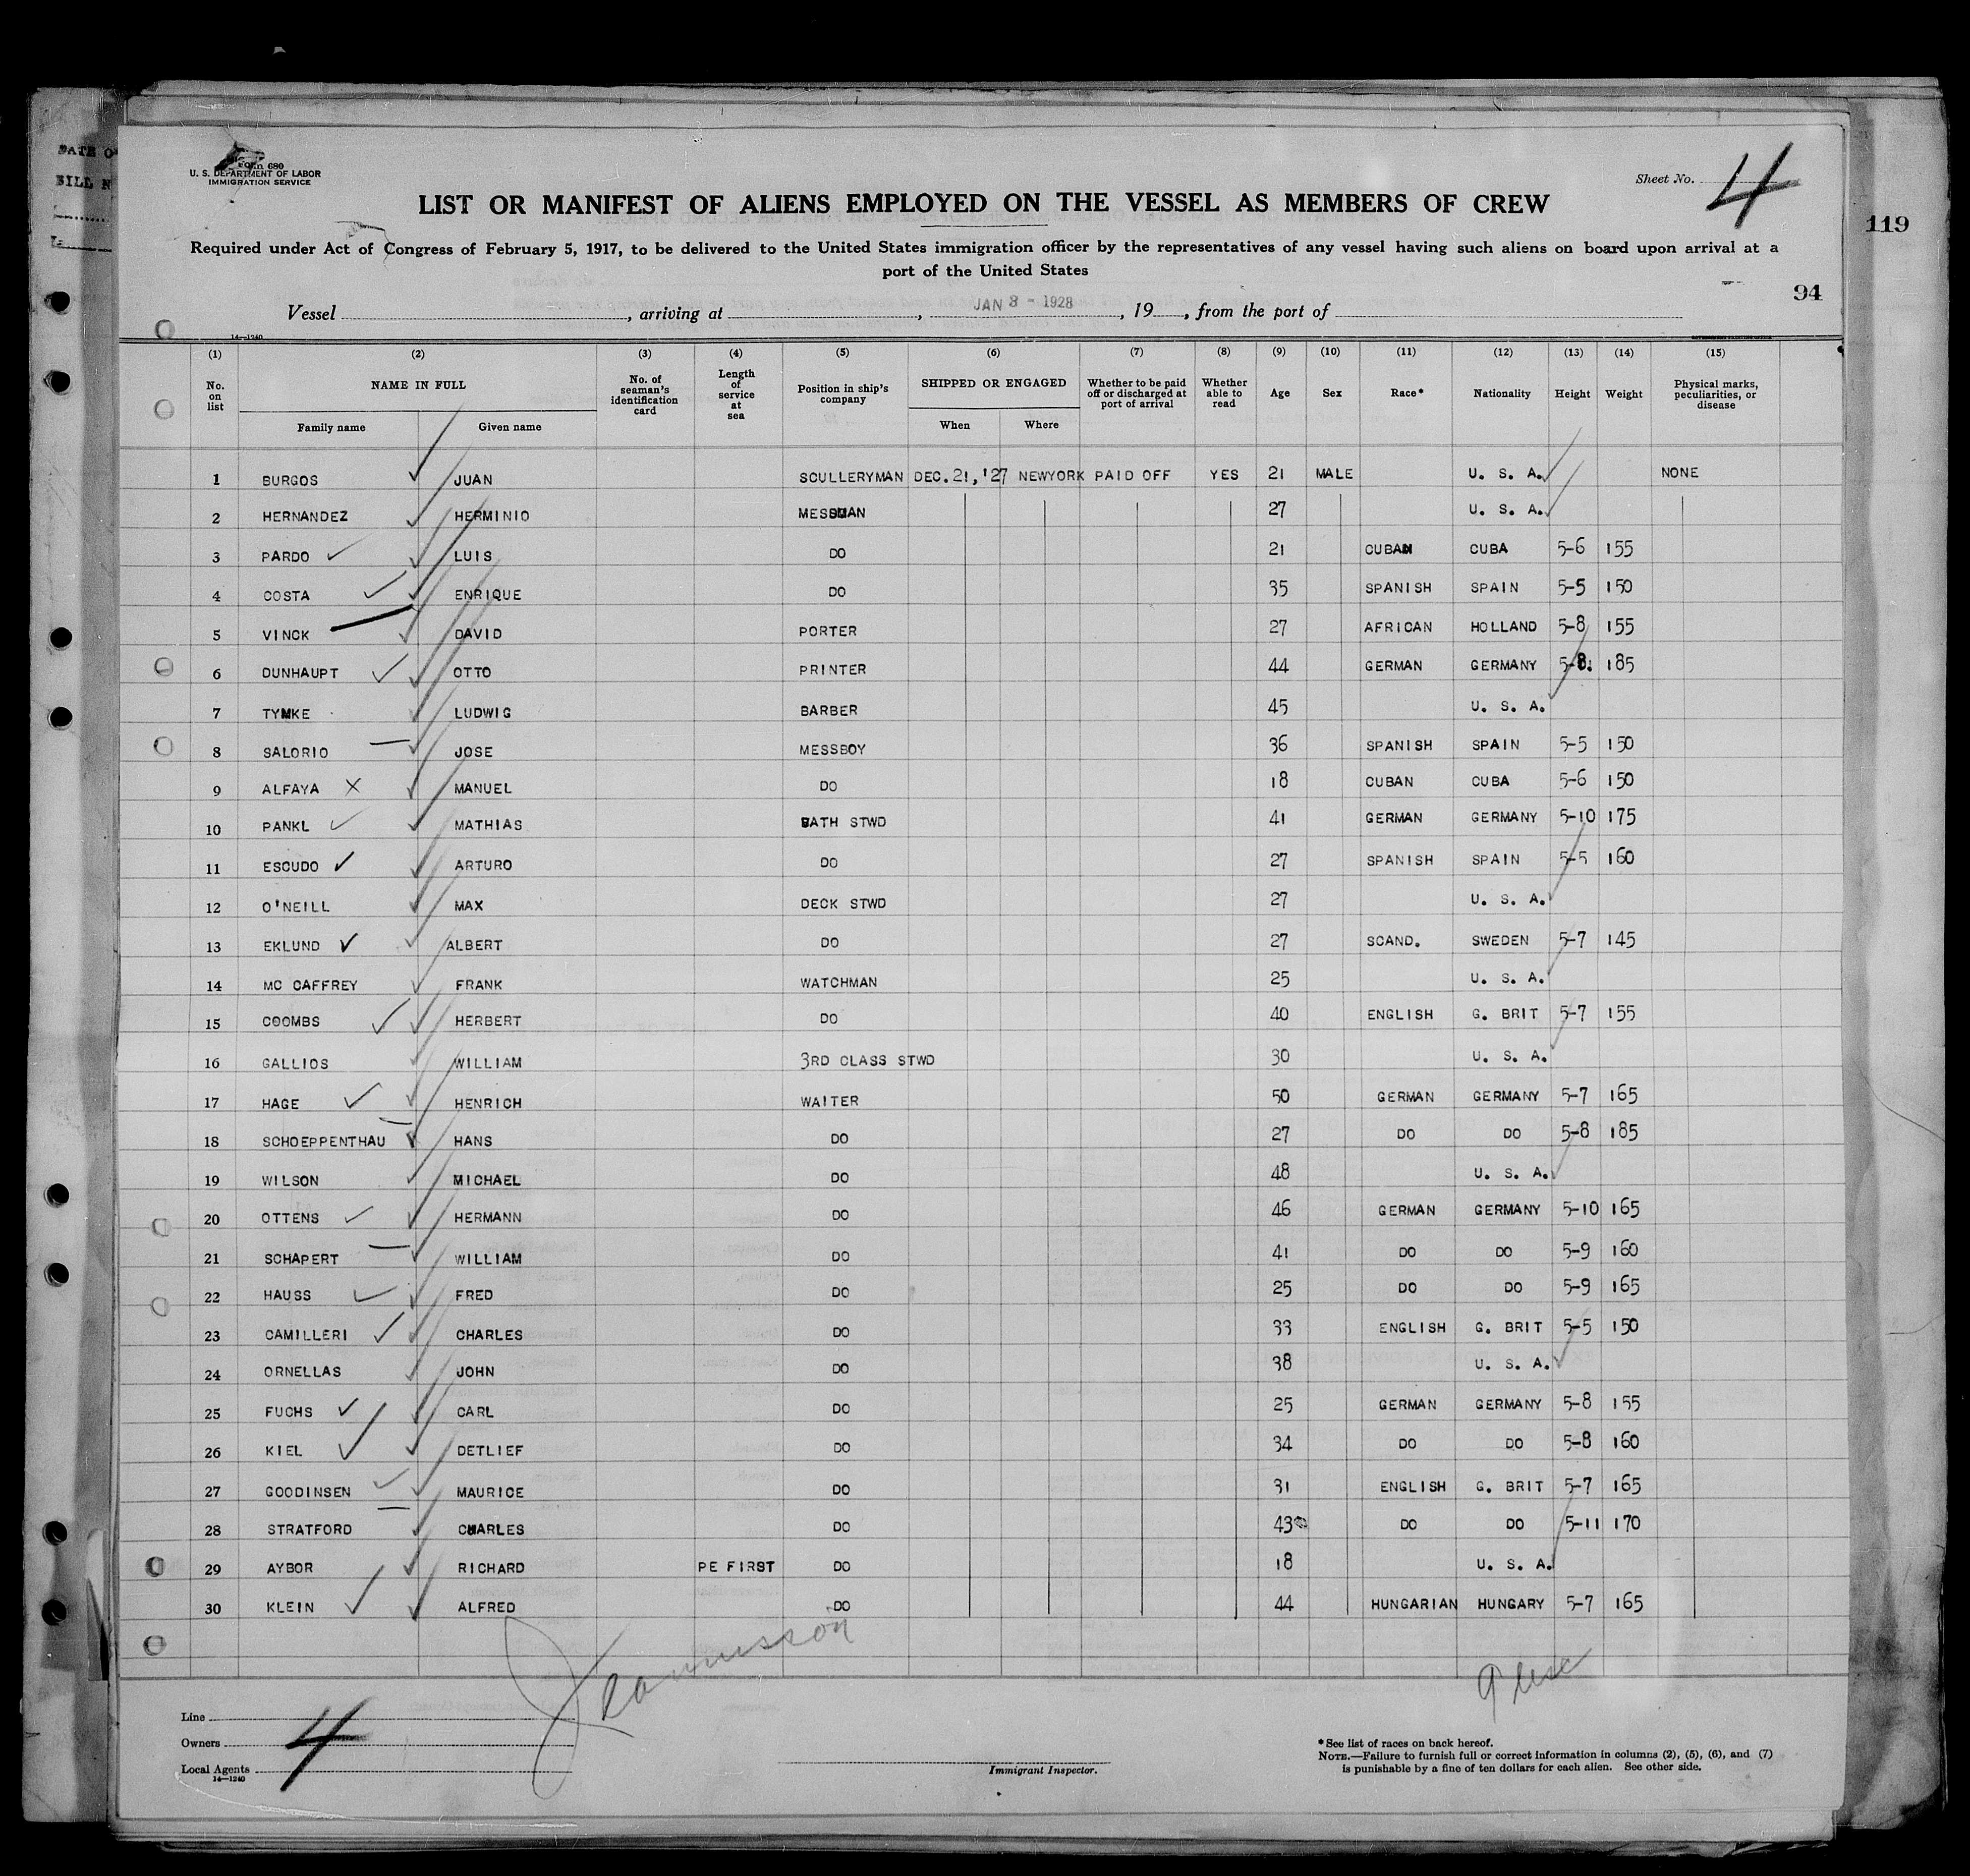 DATE O
BILL N
Form 680
U. S. DEPARTMENT OF LABOR
IMMIGRATION SERVICE
Sheet No. 4
LIST OR MANIFEST OF ALIENS EMPLOYED ON THE VESSEL AS MEMBERS OF CREW
119
Required under Act of Congress of February 5, 1917, to be delivered to the United States immigration officer by the representatives of any vessel having such aliens on board upon arrival at a
port of the United States
94
Vessel , arriving at , JAN 8 - 1928 , 19 , from the port of
14—1240
(1) (2) (3) (4) (5) (6) (7) (8) (9) (10) (11) (12) (13) (14) (15)
No. on list NAME IN FULL No. of seaman's identification card Length of service at sea Position in ship's company SHIPPED OR ENGAGED Whether to be paid off or discharged at port of arrival Whether able to read Age Sex Race* Nationality Height Weight Physical marks, peculiarities, or disease
Family name Given name When Where
1 BURGOS JUAN SCULLERYMAN DEC.21,'27 NEWYORK PAID OFF YES 21 MALE U. S. A. NONE
2 HERNANDEZ HERMINIO MESSMAN 27 U. S. A.
3 PARDO LUIS DO 21 CUBAN CUBA 5-6 155
4 COSTA ENRIQUE DO 35 SPANISH SPAIN 5-5 150
5 VINCK DAVID PORTER 27 AFRICAN HOLLAND 5-8 155
6 DUNHAUPT OTTO PRINTER 44 GERMAN GERMANY 5-8. 185
7 TYMKE LUDWIG BARBER 45 U. S. A.
8 SALORIO JOSE MESSBOY 36 SPANISH SPAIN 5-5 150
9 ALFAYA X MANUEL DO 18 CUBAN CUBA 5-6 150
10 PANKL MATHIAS BATH STWD 41 GERMAN GERMANY 5-10 175
11 ESCUDO ARTURO DO 27 SPANISH SPAIN 5-5 160
12 O'NEILL MAX DECK STWD 27 U. S. A.
13 EKLUND ALBERT DO 27 SCAND. SWEDEN 5-7 145
14 MC CAFFREY FRANK WATCHMAN 25 U. S. A.
15 COOMBS HERBERT DO 40 ENGLISH G. BRIT 5-7 155
16 GALLIOS WILLIAM 3RD CLASS STWD 30 U. S. A.
17 HAGE HENRICH WAITER 50 GERMAN GERMANY 5-7 165
18 SCHOEPPENTHAU HANS DO 27 DO DO 5-8 185
19 WILSON MICHAEL DO 48 U. S. A.
20 OTTENS HERMANN DO 46 GERMAN GERMANY 5-10 165
21 SCHAPERT WILLIAM DO 41 DO DO 5-9 160
22 HAUSS FRED DO 25 DO DO 5-9 165
23 CAMILLERI CHARLES DO 33 ENGLISH G. BRIT 5-5 150
24 ORNELLAS JOHN DO 38 U. S. A.
25 FUCHS CARL DO 25 GERMAN GERMANY 5-8 155
26 KIEL DETLIEF DO 34 DO DO 5-8 160
27 GOODINSEN MAURICE DO 31 ENGLISH G. BRIT 5-7 165
28 STRATFORD CHARLES DO 43 DO DO 5-11 170
29 AYBOR RICHARD PE FIRST DO 18 U. S. A.
30 KLEIN ALFRED DO 44 HUNGARIAN HUNGARY 5-7 165
Line
Owners
4
Local Agents
14—1240
Immigrant Inspector.
*See list of races on back hereof.
NOTE.—Failure to furnish full or correct information in columns (2), (5), (6), and (7)
is punishable by a fine of ten dollars for each alien. See other side.